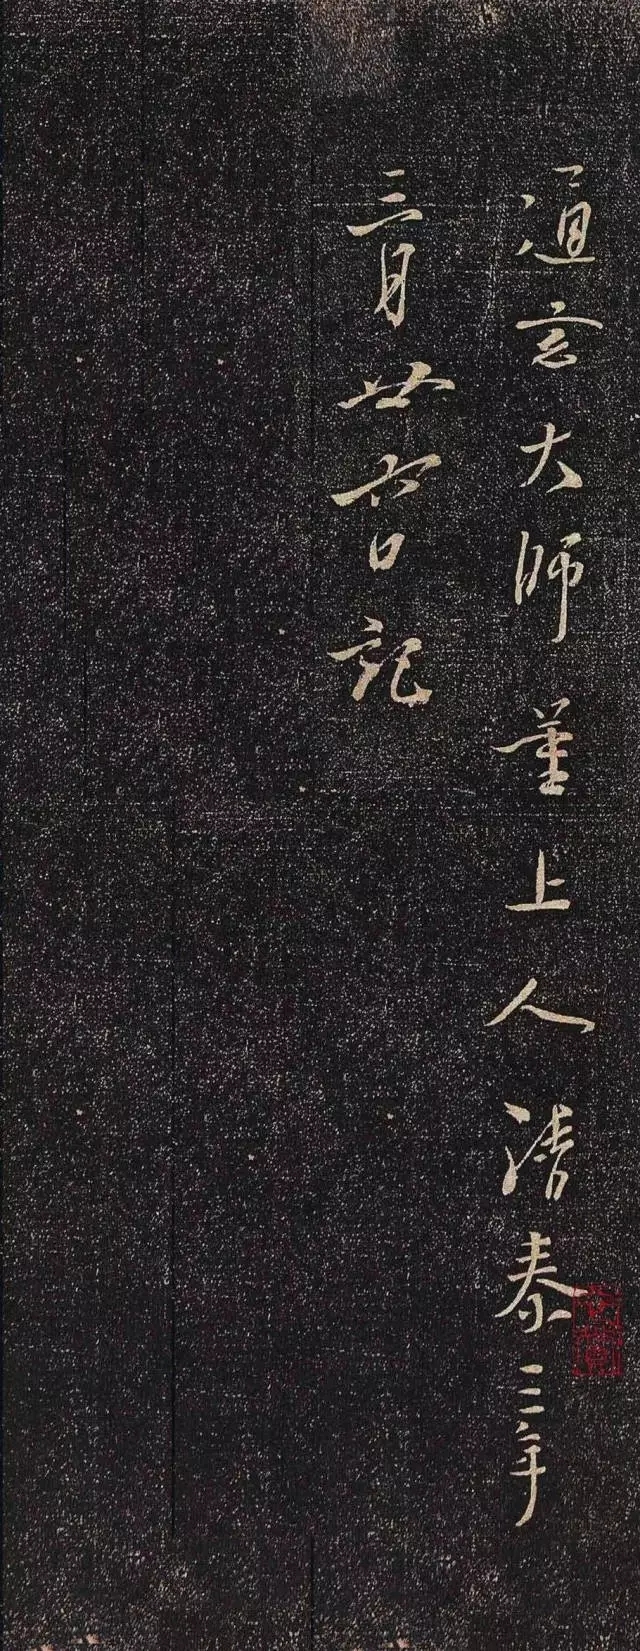 通玄大師董上人清泰三年
三月廿六日記